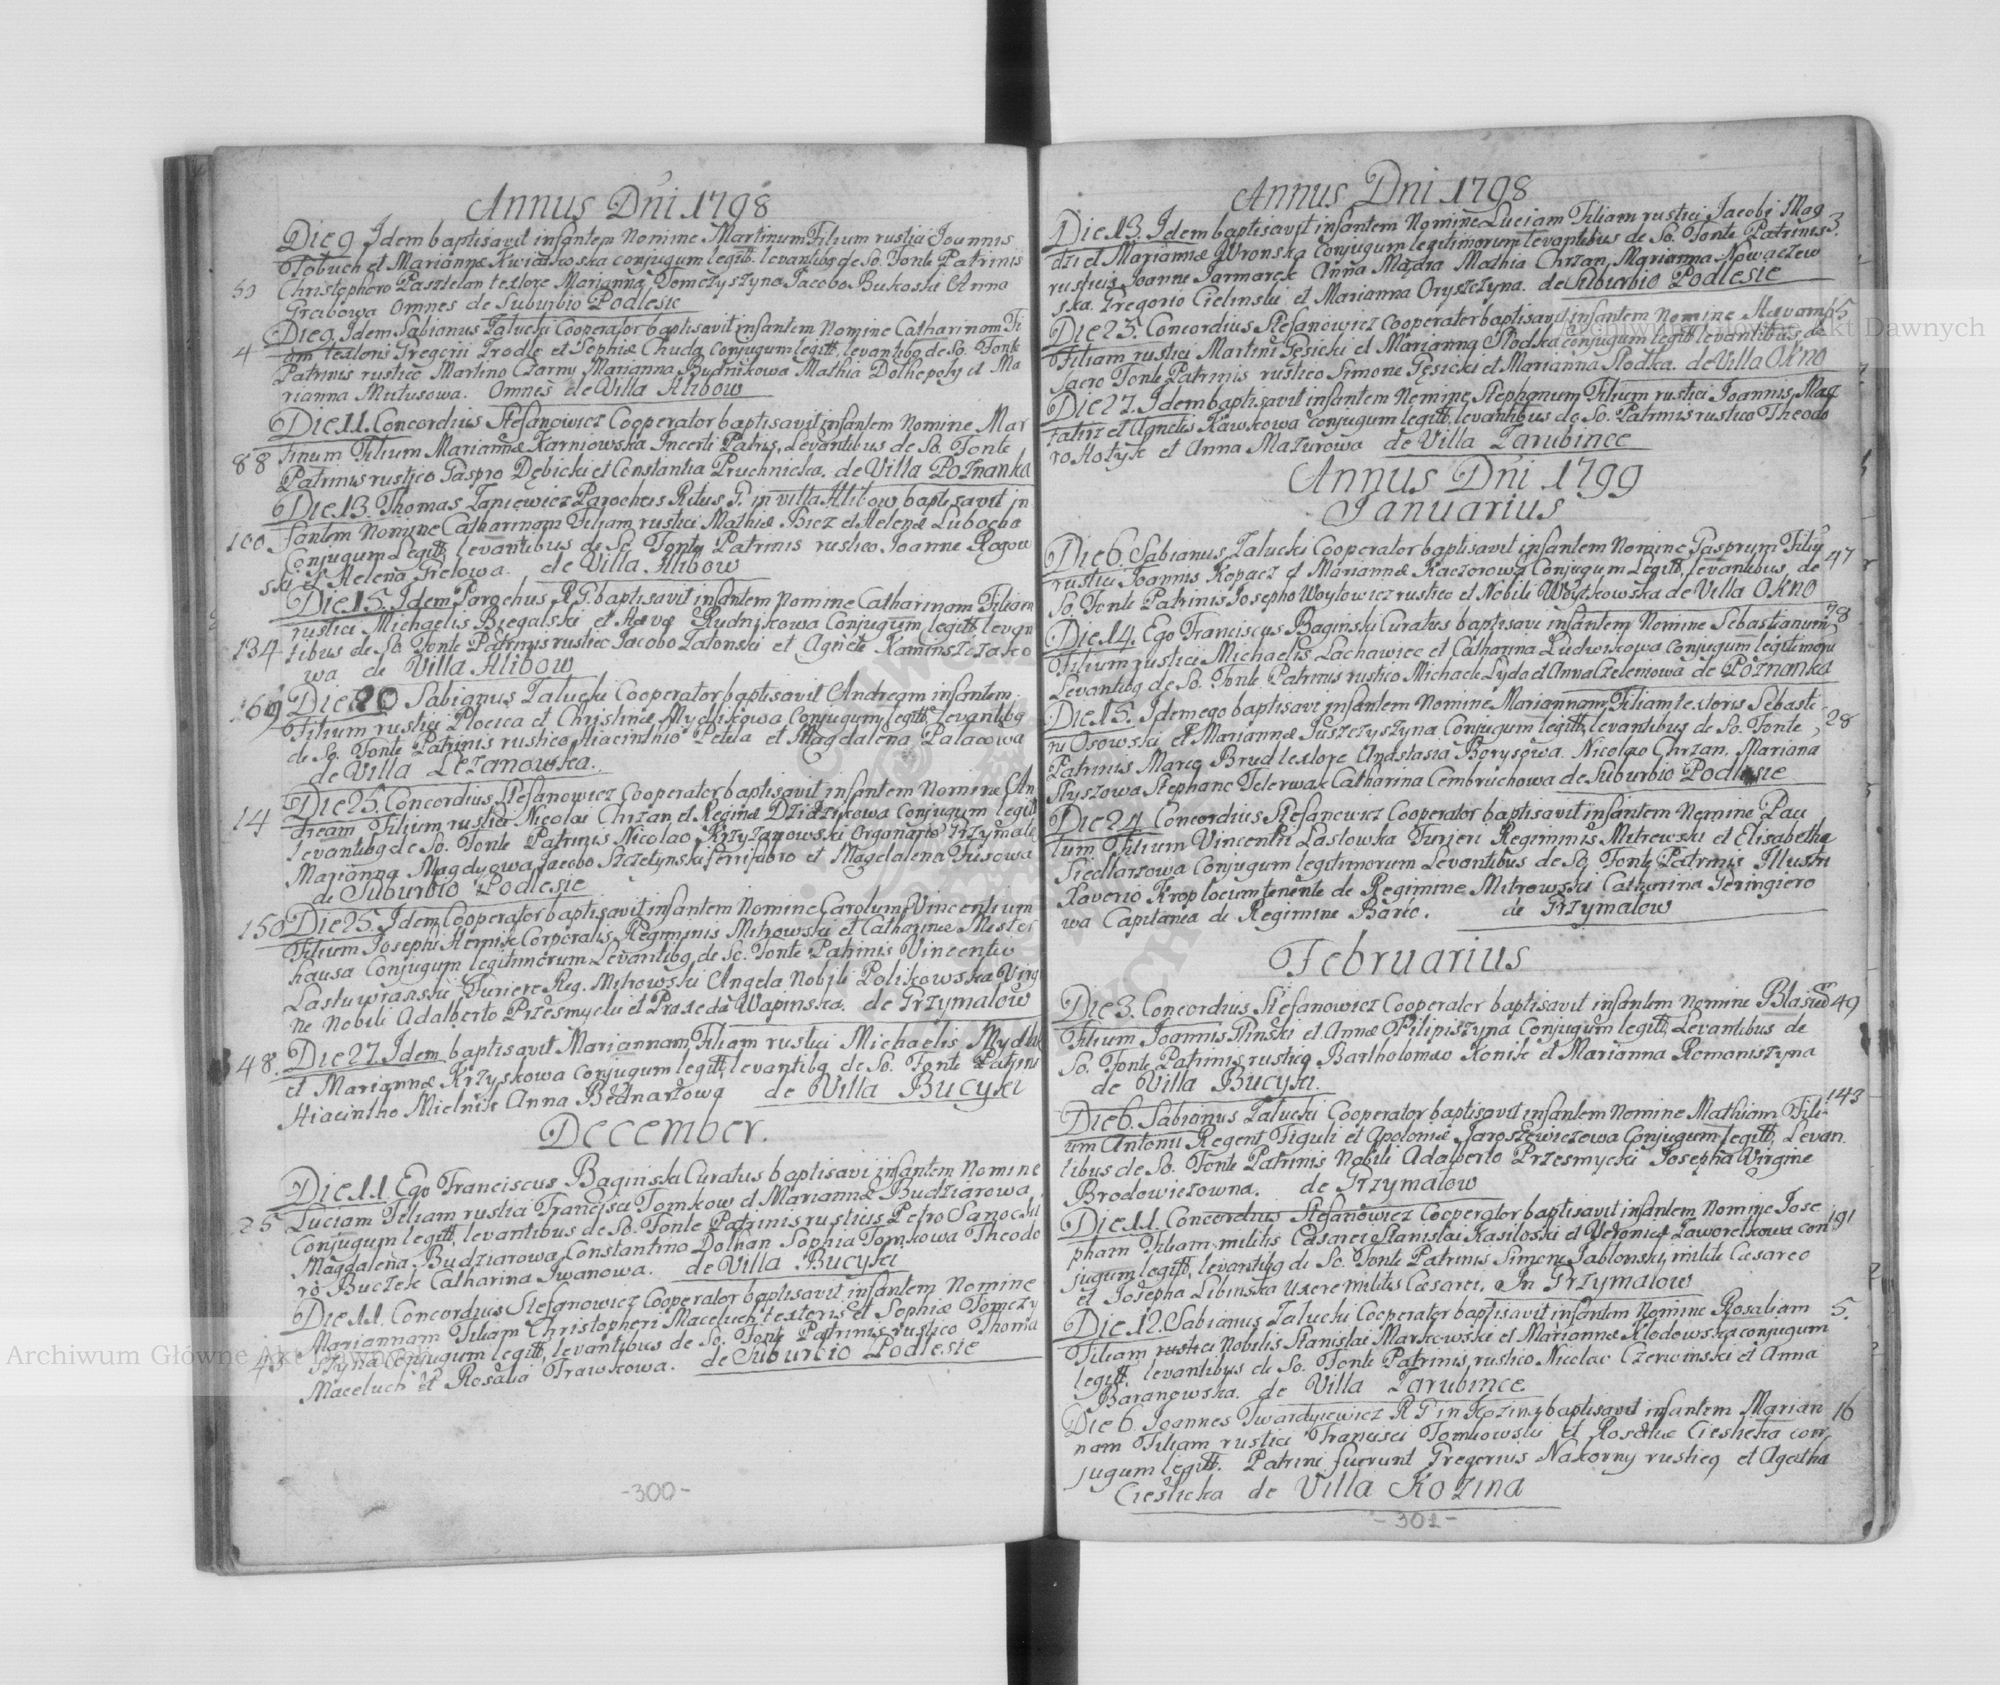 Annus Dni 1798
Die 9 Idem baptisavit infantem Nomine Martinum Filium rustici Joannis
Tobuch et Mariannæ Kwiatkowska conjugum legitt. levantibg de So. Fonte Patrinis
50 Christophoro Pasztelan textore Marianna Tomczyszyna Jacobo Bukoski Anna
Grabowa Omnes de Suburbio Podlesie
Die 9. Idem Sabianus Tatucki Cooperator baptisavit infantem Nomine Catharinam Fi
4 am textoris Gregorii Trodle et Sophiæ Chuda conjugum legitt. levantibg de So. Fonte
Patrinis rustico Martino Czarny Marianna Budnikowa Mathia Dolhopoly et Ma
rianna Mulusowa. Omnes de Villa Hlibow
Die 11. Concordius Stefanowicz Cooperator baptisavit infantem Nomine Mar
88 tinum Filium Mariannæ Karniowska Incerti Patris, Levantibus de So. Fonte
Patrinis rustico Gaspro Dębicki et Constantia Pruchnicka. de Villa Poznanka
Die 13. Thomas Taniewicz Parochus Ritus G. in villa Hlibow baptisavit in
100 fantem Nomine Catharinam Filiam rustici Mathiæ Biez et Helenæ Lubocha
Conjugum Legitt. levantibus de So. Fonte Patrinis rustico Joanne Rogow
ski et Helena Grelowa. de Villa Hlibow
Die 15. Idem Parochus R G. baptisavit infantem nomine Catharinam Filiam
rustici Michaelis Biegalski et Hævæ Rudnikowa Conjugum legitt. levan
134 tibus de So. Fonte Patrinis rustico Jacobo Tatonski et Agnete Kaminszczako
wa de Villa Hlibow
169 Die 20 Sabianus Tatucki Cooperator baptisavit Andream infantem
Filium rustici Ploeica et Christinæ Mydlikowa Conjugum legitt. levantibg
de So. Fonte Patrinis rustico Hiacinthio Petela et Magdalena Palacowa
de Villa Lezanowska.
Die 25. Concordius Stefanowicz Cooperator baptisavit infantem Nomine An
14 dream Filium rustici Nicolai Chrzan et Reginæ Dziadzikowa Conjugum legitt
levantibg de So. Fonte Patrinis Nicolao Krzyzanowski Organario Grzymalo
Marianna Magdygowa Jacobo Szczetynski ferrifabro et Magdalena Fusowa
de Suburbio Podlesie
150 Die 25. Idem Cooperator baptisavit infantem Nomine Carolum Vincentium
Filium Josephi Hernik Corporalis Regiminis Mitrowski et Catharinæ Mister
hausa Conjugum legitimorum Levantibg de So. Fonte Patrinis Vincentio
Lastuwianski Furiere Reg. Mitrowski Angela Nobili Polikowska Virgi
ne Nobili Adalberto Przesmycki et Praxeda Wapinska. de Grzymalow
48. Die 27. Idem baptisavit Mariannam, Filiam rustici Michaelis Mydlak
et Mariannæ Krzyskowa Conjugum legitt. levantibg de So. Fonte Patrinis
Hiacintho Mielnik Anna Bednarzowa de Villa Bucyki
December.
Die 11. Ego Franciscus Baginski Curatus baptisavi infantem Nomine
25 Luciam Filiam rustici Francisci Tomkow et Mariannæ Budziarowa
Conjugum legitt. levantibus de So. Fonte Patrinis rusticis Petro Sanocki
Magdalena Budziarowa Constantino Dolhan Sophia Tomkowa Theodo
ro Buczek Catharina Iwanowa. de Villa Bucyki
Die 11. Concordius Stefanowicz Cooperator baptisavit infantem Nomine
Mariannam Filiam Christopheri Maceluch textoris et Sophiæ Tomczy
43 szyna Conjugum legitt. levantibus de So. Fonte Patrinis rustico Thoma
Maceluch et Rosalia Trawkowa. de Suburbio Podlesie
-300-
Annus Dni 1798
Die 13. Idem baptisavit infantem Nomine Luciam Filiam rustici Jacobi Mag
dzi et Mariannæ Wronska Conjugum legitimorum levantibus de So. Fonte Patrinis 3.
rusticis Joanne Jarmarek Anna Madra Mathia Chrzan, Marianna Nowaczew
ska. Gregorio Cielinski et Marianna Oryszczyna. de Suburbio Podlesie
Die 25. Concordius Stefanowicz Cooperator baptisavit infantem Nomine Hævam 15
Filiam rustici Martini Gęsicki et Marianna Slodka conjugum legitt. levantibus de
Sacro Fonte Patrinis rustico Simone Gęsicki et Marianna Slodka. de Villa Okno
Die 27. Idem baptisavit infantem Nomine Stephanum Filium rustici Joannis, Maz
7
ratin et Agnetis Kawskowa conjugum legitt. levantibus de So. Patrinis rustico Theodo
ro Holyk et Anna Mazurowa de Villa Zarubince
Annus Dni 1799
Januarius
Die 6. Sabianus Tatucki Cooperator baptisavit infantem Nomine Gasprum Filiu
rustici Joannis Kopacz et Mariannæ Kaczorowa Conjugum Legitt. levantibus de 47
So. Fonte Patrinis Josepho Woytowicz rustico et Nobili Woytkowska de Villa Okno
Die 14. Ego Franciscus Baginski Curatus baptisavi infantem Nomine Sebastianum 78
Filium rustici Michaelis Lachawiec et Catharina Ludwikowa Conjugum legitimoru
Levantibg de So. Fonte Patrinis rustico Michaele Lyda et Anna Czeleniowa de Poznanka
Die 15. Idem ego baptisavi infantem Nomine Mariannam, Filiam textoris Sebasti-
ni Osowski et Mariannæ Juszczyszyna Conjugum legitt. levantibus de So. Fonte 28
Patrinis Marco Brud textore Anastasia Borysowa. Nicolao Chrzan. Mariana
Styszowa Stephano Telerwak Catharina Cembruchowa de Suburbio Podlesie
Die 24 Concordius Stefanowicz Cooperator baptisavit infantem Nomine Pau
lum Filium Vincentii Lastowska Furieri Regiminis Mitrowski et Elisabetha
Siedlarzowa Conjugum legitimorum Levantibus de So. Fonte Patrinis Illustri
Xaverio Krop locumtenente de Regimine Mitrowski Catharina Geringiero
wa Capitanea de Regimine Barco. de Grzymalow
Februarius
Die 3. Concordius Stefanowicz Cooperator baptisavit infantem Nomine Blasium 49
Filium Joannis Glinski et Annæ Filipiszyna Conjugum legitt. Levantibus de
So. Fonte Patrinis rustico Bartholomæo Konik et Marianna Romaniszyna
de Villa Bucyki.
143
Die 6. Sabianus Tatucki Cooperator baptisavit infantem Nomine Mathiam Fili-
um Antonii Regent Figuli et Apoloniæ Jaroszewiczewa Conjugum legitt. Levan.
tibus de So. Fonte Patrinis Nobili Adalberto Przesmycki Josepha Virgine
Brodowiczowna. de Grzymalow
Die 11. Concordius Stefanowicz Cooperator baptisavit infantem Nomine Jose
pham Filiam militis Cæsarei Stanislai Kasiloski et Veronicæ Jaworelkowa con 191
jugum legitt. levantibg de So. Fonte Patrinis Simone Jablonski milite Cæsareo
et Josepha Libinska Uxore Militis Cæsarei. In Grzymalow
Die 12. Sabianus Tatucki Cooperator baptisavit infantem Nomine Rosaliam 5.
Filiam rustici Nobilis Stanislai Markowski et Mariannæ Klodowska conjugum
legitt. levantibus de So. Fonte Patrinis rustico Nicolao Czerwinski et Anna
Baranowska. de Villa Zarubince
Die 6. Joannes Twardyiewicz R G in Kozina baptisavit infantem Marian 16
nam Filiam rustici Francisci Tomkowski et Rosaliæ Ciesticka con.
jugum legitt. Patrini fuerunt Gregorius Nakorny rusticg et Agatha
Ciesticka de Villa Kozina
-301-
Archiwum Główne Akt Dawnych
Archiwum Główne Akt Dawnych